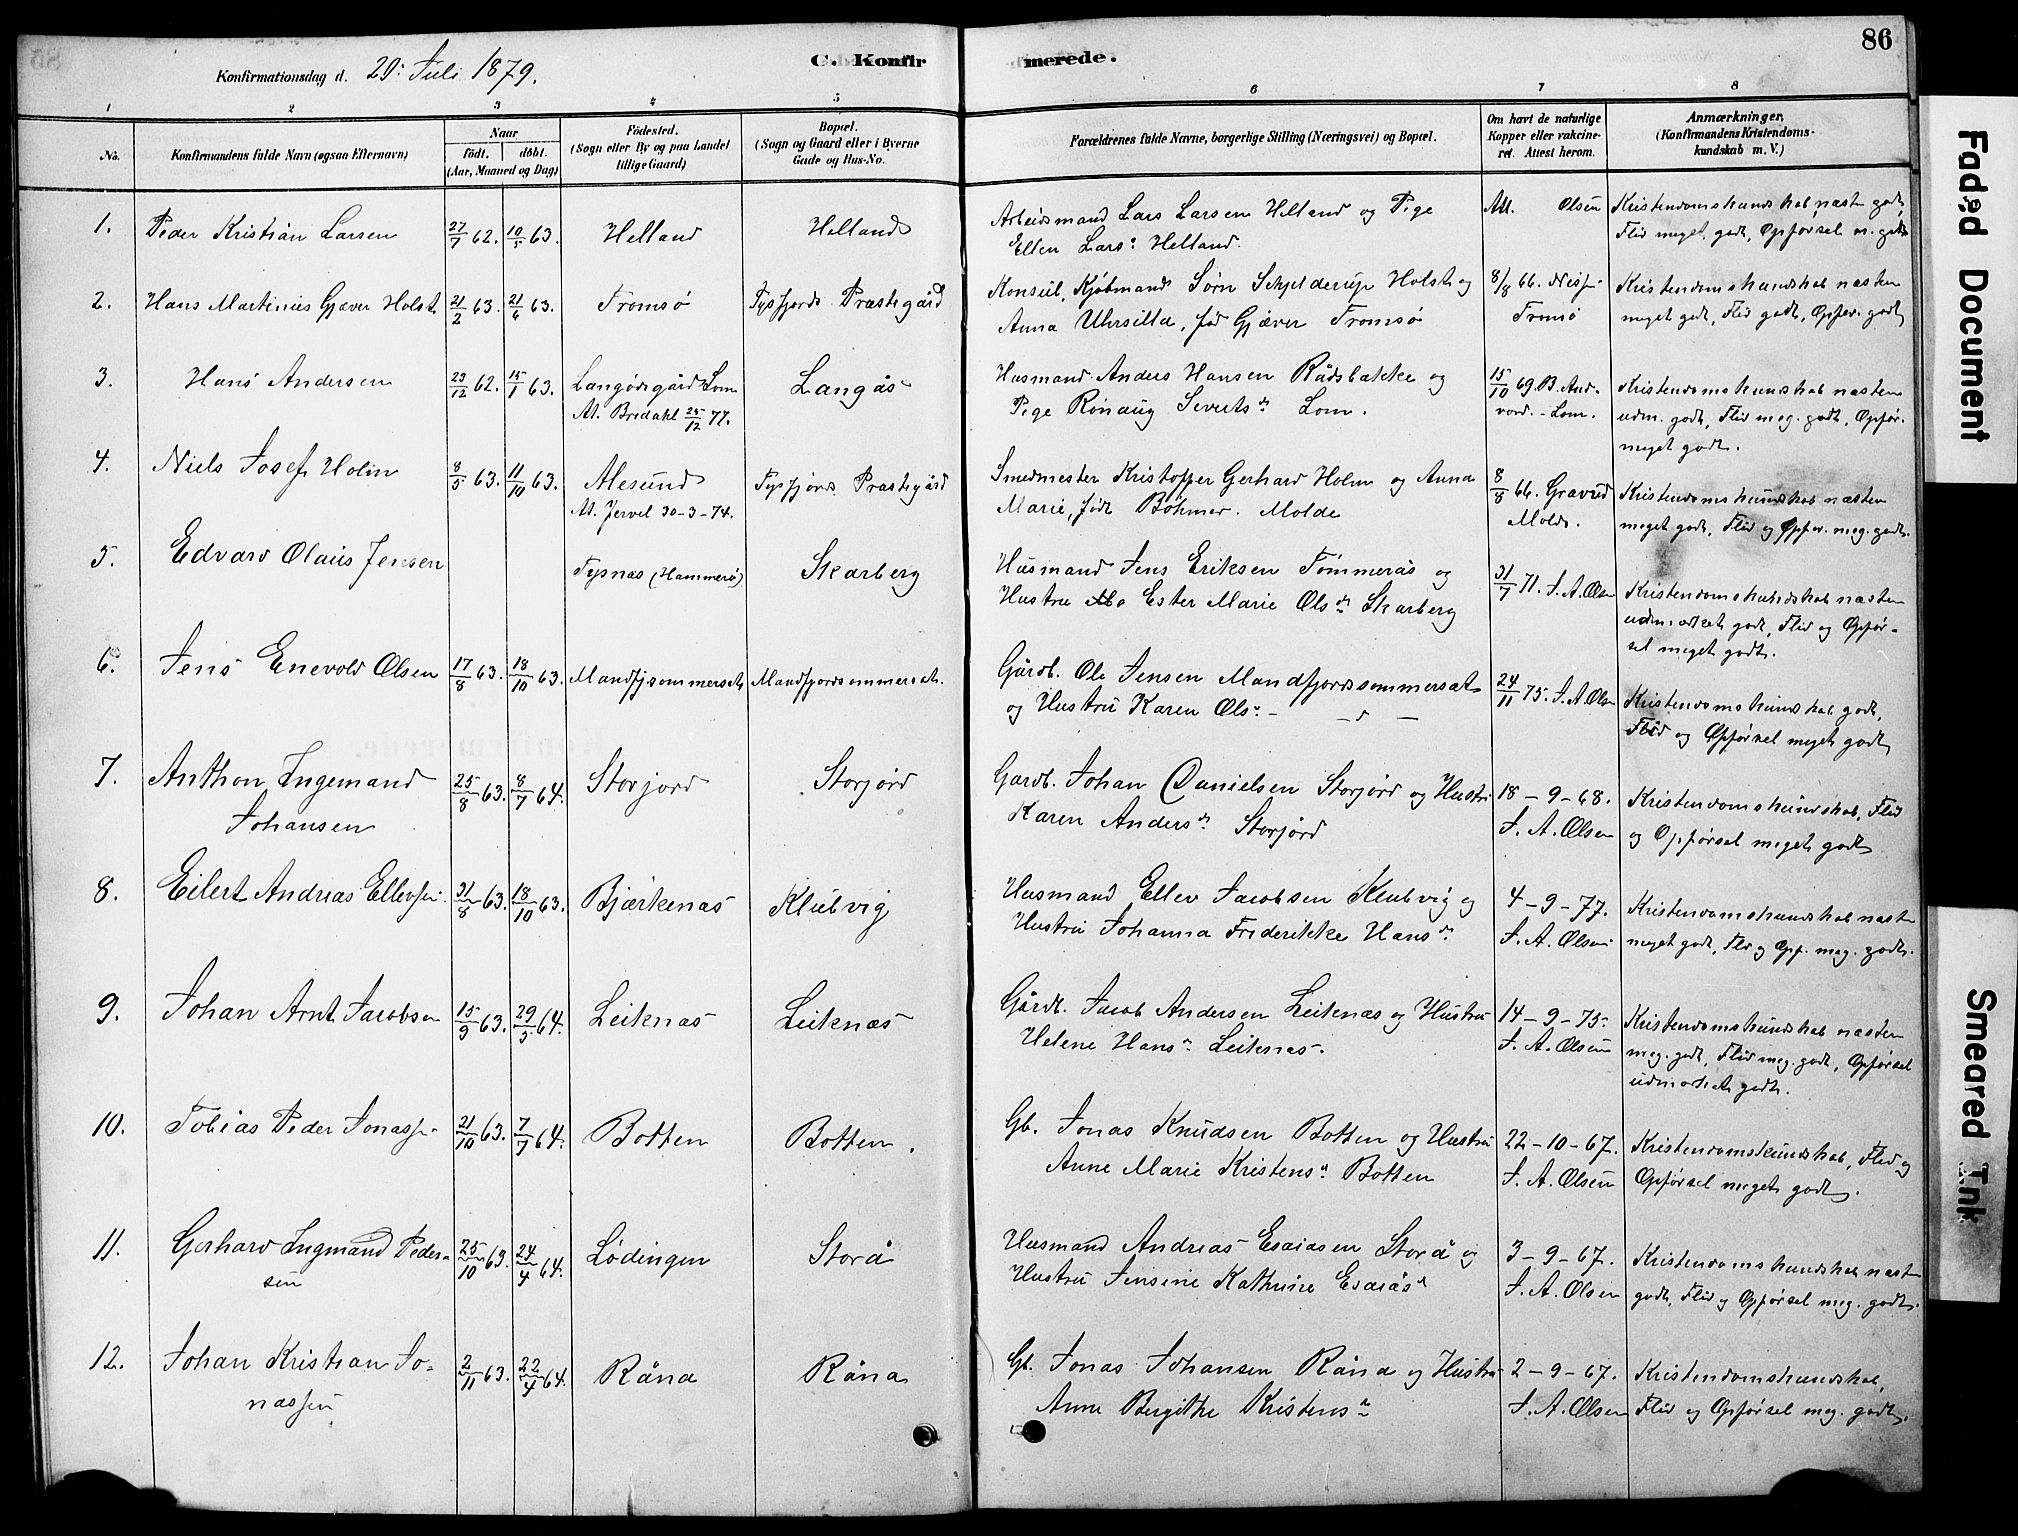 86
Konfirmationsdag d. 20: Juli 1879.
C. Konfirmerede.
1 2 3 4 5 6 7 8
No.
Konfirmandens fulde Navn (ogsaa Efternavn)
Naar
födt. döbt.
(Aar, Maaned og Dag)
Födested.
(Sogn eller By og paa Landet
tillige Gaard)
Bopæl.
(Sogn og Gaard eller i Byerne
Gade og Hus-No.
Forældrenes fulde Navne, borgerlige Stilling (Næringsvei) og Bopæl.
Om havt de naturlige
Kopper eller vakcine-
ret. Attest herom.
Anmærkninger,
(Konfirmandens Kristendoms-
kundskab m. V.)
1. Peder Kristian Larsen 27/7 62. 10/5 63. Helland Helland
Arbeidsmand Lars Larsen Helland og Pige
Ellen Larsn Helland.
Att. Olsen
Kristendomskundskab næsten godt,
Flid meget godt, Opførsel m. godt
2. Hans Martinius Gjæver Holst. 21/2 63. 21/6 63. Tromsø Tysfjords Præstegård
Konsul, Kjøbmand Sørn Schjelderup Holst og
Anna Uhrsilla, fød Gjæver Tromsø
8/8 66.
Tromsø
Kristendomskundskab næsten
meget godt, Flid godt, Opfør. godt
3. Hans Andersen 23/12 62. 15/1 63. Lom
At. Bredahl 25/12 77.
Langås
Husmand Anders Hansen Rådsbakke og
Pige Rønaug Siverts dr Lom.
15/10 69. B. And-
vord - Lom.
Kristendomskundskab næsten
udm. godt, Flid meg. godt, Opfør.
meget godt.
4. Niels Josef Holm 8/5 63. 11/10 63. Alesund
At. Jervel 30-3-74.
Tysfjords Præstegård
Smedmester Kristoffer Gerhard Holm og Anna
Marie, født Böhmer. Molde
8/8 66. Gravud
Molde.
Kristendomskundskab næsten
meget godt, Flid og Opfør. meg. godt.
5. Edvard Olaus Jensen Tysnæs (Hammerø) Skarberg
Husmand Jens Eriksen Tømmerås og
Hustru Ester Marie Ols dr Skarberg
31/7 71. J. A. Olsen
Kristendomskundskab næsten
udmærket godt, Flid og Opfør-
sel meget godt.
6. Jens Enevold Olsen 17/8 63. 18/10 63. Mandfjsommersæt Mandfjordsommersæt.
Gårdb. Ole Jensen Mandfjordsommersæt
og Hustru Karen Ols. - -d -
24/11 75. J. A. Olsen
Kristendomskundskab godt,
Flid og Opførsel meget godt
7. Anthon Ingemand
Johansen
25/8 63. 8/7 64. Storjord Storjord
Gardb. Johan Danielsen Storjord og Hustru
Karen Anders dr Storjord
18-9-68.
J. A. Olsen
Kristendomskundskab, Flid
og Opførsel meget godt
8. Eilert Andreas Ellevsen. 31/8 63. 18/10 63. Bjærkenæs Klubvig
Husmand Ellev Jacobsen Klubvig og
Hustru Johanna Frederikke Hans dr
4-9-77.
J. A. Olsen
Kristendomskundskab næsten
meget godt, Flid og Opf. meg. godt.
9. Johan Arnt Jacobsen 15/9 63. 29/5 64. Leiknæs Leiknæs
Gårdb. Jacob Andersen Leiknæs og Hustru
Helene Hans dr Leiknæs.
14-9-75.
J. A. Olsen
Kristendomskundskab næsten
meg. godt, Flid meg. godt, Opførsel
udmærket godt.
10. Tobias Peder Jonassen 21/10 63. 7/7 64. Botten Botten.
Gb. Jonas Knudsen Botten og Hustru
Anne Marie Kristens dr Botten
22-10-67.
J. A. Olsen
Kristendomskundskab, Flid og
Opførsel meget godt.
11. Gerhard Ingmand Peder-
sen
25/10 63. 24/4 64. Lødingen Storå
Husmand Andreas Esaiasen Storå og
Hustru Jensine Kathrine Esaias d
3-9-67.
J. A. Olsen
Kristendomskundskab næsten
godt, Flid og Opførsel meg. godt.
12. Johan Kristian Jo-
nassen
2/11 63. 22/4 64. Råna Råna
Gb. Jonas Johansen Råna og Hustru
Anne Bergithe Kristens dr
2-9-67.
J. A. Olsen
Kristendomskundskab,
Flid og Opførsel meg. godt.
Faded Document
Smeared Ink